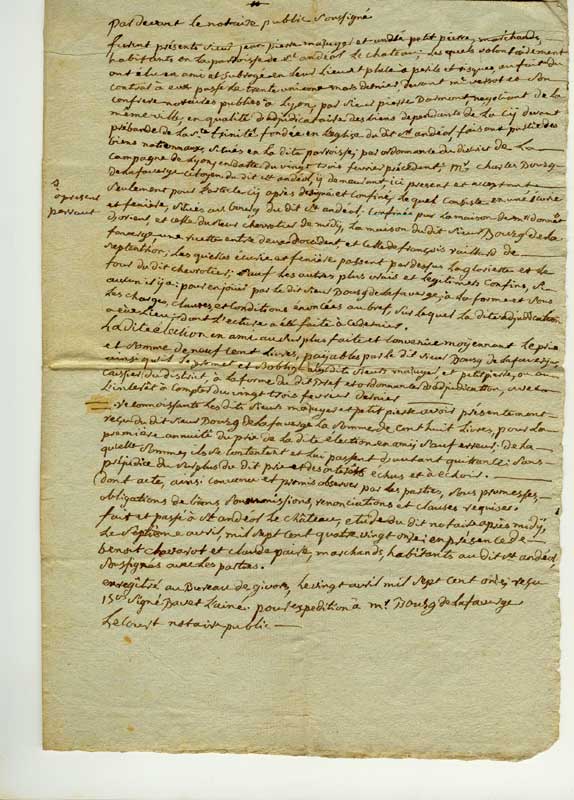 Par devant le notaire public soussigné
furent présents sieur jean pierre mazuyer et andré petit pierre, marchands,
habitants en la paroisse de St andéol le chateau; lesquels volontairement
ont élu en ami et subrogé en leur lieu et place a perils et risques au fait du
contrat a eux passé le trente unieme mars dernier devant me et son
confrere notaires publics a Lyon, par sieur pierre Dormont, negotiant de la
même ville, en qualité d'adjudicataire des biens dependants de la cy devant
prébande de la Ste trinité fondée en l'eglise du dit St andéol faisant partie des
biens nationnaux, situés en la dite paroisse, par ordonnance du district de La
Campagne de Lyon en datte du vingt trois fevrier précédent; Mr charles Bourg
de Lafaverge citoyen du dit St andéol, y demeurant, ici present et acceptant
à present
par tout
seulement pour l'article cy après désigné et confiné, lequel consiste en une écurie
et feniere, situés au bourg du dit St andéol. Confinée par la maison de
d'orient, et celle du sieur chevrotier de midy, la maison du dit sieur Bourg de la
faverge, une ruette entre deux d'occident et celle de françois vaillard de
septentrion; Lesquelles écurie et feniere passent par dessus la gloriette et le
four du dit chevrotier; sauf les autres plus vrais et legitimes confins, si
aucun il y a: pour en jouir par le dit sieur Bourg de Lafaverge, a la forme et sous
les charges, clauses et conditions énoncées au bref, sur lequel la dite adjudication
a eu lieu, dont lecture a été faite à ce dernier.
La dite élection en ami au surplus faite et convenue moyennant le prix
et somme de neuf cent livres, payables par le dit sieur Bourg de Lafaverge,
ainsi qu'il le promet et s'oblige aux dits sieurs mazuyer et petit pierre, ou au
caissier du district, a la forme du dit bref et ordonnance d'adjudication, avec
l'intérêt à compter du vingt trois fevrier dernier
reconnoissants les dits sieurs mazuyer et petit pierre avoir présentement
reçu du dit sieur Bourg de Lafaverge la somme de cent huit livres, pour la
premiere annuité du prix de la dite élection en ami, sauf erreur; de la
quelle somme, ils se contentent et lui passent d'autant quittance: sans
préjudice du surplus du dit prix et des interets échus et à échoir.
Dont acte, ainsi convenu et promis observer par les parties, sous promesses,
obligations de biens, soumissions, renonciations et clauses requises.
fait et passé à St andéol le château, etude du dit notaire après midy,
Le septième avril, mil sept cent quatre vingt onze; en présence de
benoit chavarot et claude paire, marchands, habitants au dit St andéol
soussignés avec les parties.
enregistré au Bureau de givors, le vingt avril mil sept cent onze, reçu
15s signé Davet L'aine. pour expedition à mr Bourg de Lafaverge
Lecourt notaire public